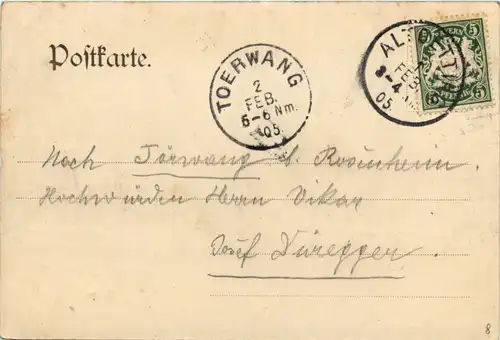 Postkarte.
TOERWANG
2
FEB.
5-6 Nm.
05
ALT
FEB
3-4
05
5 BAYERN 5
5 5
Nach Törwang b. Rosenheim.
Hochwürden Herrn Vikar
Josef Düregger.
8